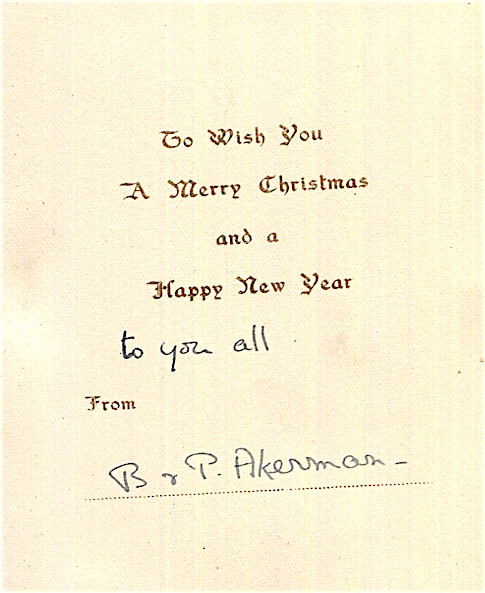 To Wish You
A Merry Christmas
and a
Happy New Year
to you all
From
B & P. Akerman -